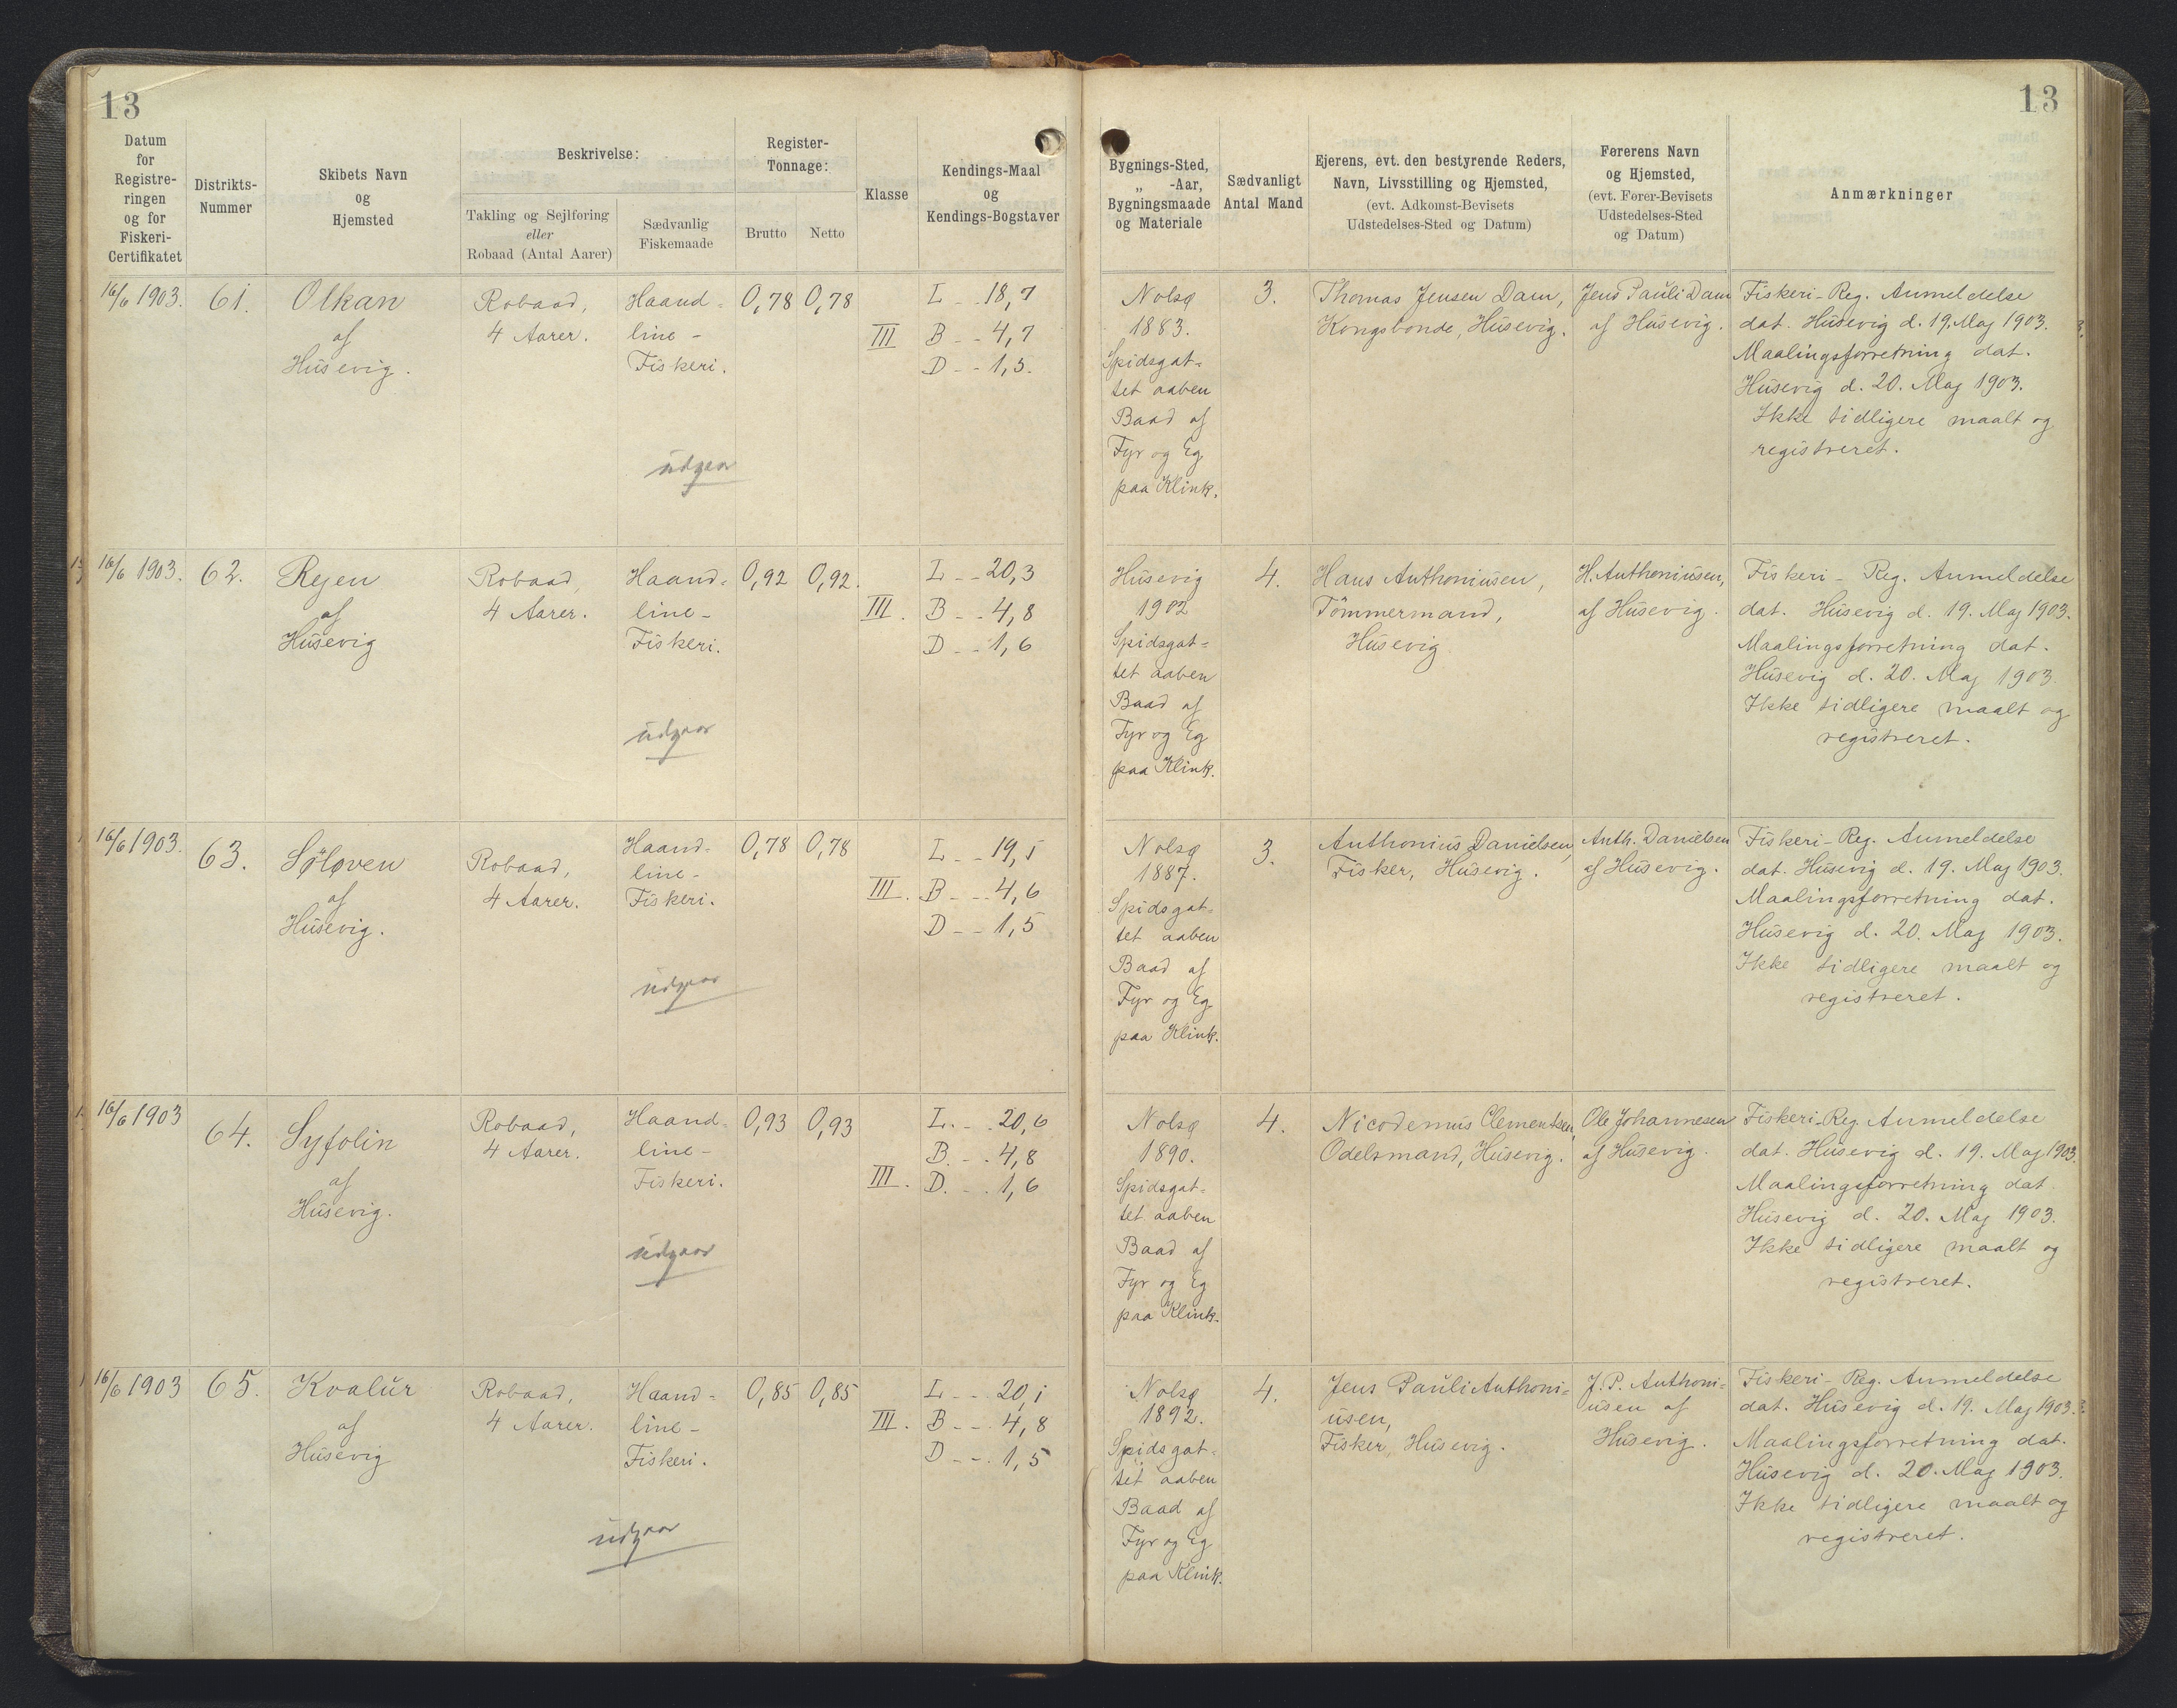 13
13
Datum
for
Registre-
ringen
og for
Fiskeri-
Certifikatet
Distrikts-
Nummer
Skibets Navn
og
Hjemsted
Beskrivelse:
Takling og Sejlføring
eller
Robaad (Antal Aarer)
Sædvanlig
Fiskemaade
Register-
Tonnage:
Brutto
Netto
Klasse
Kendings-Maal
og
Kendings-Bogstaver
Bygnings-Sted,
„ -Aar,
Bygningsmaade
og Materiale
Sædvanligt
Antal Mand
Ejerens, evt. den bestyrende Reders,
Navn, Livsstilling og Hjemsted,
(evt. Adkomst-Bevisets
Udstedelses-Sted og Datum)
Førerens Navn
og Hjemsted,
(evt. Fører-Bevisets
Udstedelses-Sted
og Datum)
Anmærkninger
16/6 1903.
61.
Olkan
af
Húsevig.
Robaad,
4 Aarer.
Haand-
line-
Fiskeri.
údgaar
0,78
0,78
III
L - - 18,7
B - - 4,7
D - - 1,5.
Nolsø
1883.
Spidsgat-
tet aaben
Baad af
Fyr og Eg
paa Klink.
3.
Thomas Jensen Dam,
Kongsbonde, Húsevig.
Jens Paúli Dam
af Húsevig.
Fiskeri-Reg. Anmeldelse
dat. Húsevig d. 19. Maj 1903.
Maalingsforretning dat.
Húsevig d. 20. Maj 1903.
Ikke tidligere maalt og
registreret.
16/6 1903.
62.
Rejen
af
Húsevig
Robaad,
4 Aarer.
Haand-
line-
Fiskeri.
údgaar
0,92
0,92.
III.
L - - 20,3
B - - 4,8
D - - 1,6
Húsevig
1902
Spidsgat-
tet aaben
Baad af
Fyr og Eg
paa Klink.
4.
Hans Anthoniúsen,
Tömmermand,
Húsevig
H. Anthoniúsen,
af Húsevig.
Fiskeri-Reg. Anmeldelse
dat. Húsevig d. 19. Maj 1903.
Maalingsforretning dat.
Húsevig d. 20. Maj 1903.
Ikke tidligere maalt og
registreret.
16/6 1903.
63.
Søløven
af
Húsevig.
Robaad,
4 Aarer.
Haand-
line-
Fiskeri.
údgaar
0,78
0,78
III.
L - - 19,5
B - - 4,6
D - - 1,5
Nolsø
1887.
Spidsgat-
tet aaben
Baad af
Fyr og Eg
paa Klink.
3.
Anthoniús Danielsen,
Fisker, Húsevig.
Anth. Danielsen
af Húsevig.
Fiskeri-Reg. Anmeldelse
dat. Húsevig d. 19. Maj 1903.
Maalingsforretning dat.
Húsevig d. 20. Maj 1903.
Ikke tidligere maalt og
registreret.
16/6 1903
64.
Syfolin
af
Húsevig.
Robaad,
4 Aarer.
Haand-
line-
Fiskeri.
údgaar
0,93
0,93
III.
L. - . 20,6
B. - . 4,8
D. - . 1,6
Nolsø
1890.
Spidsgat-
tet aaben
Baad af
Fyr og Eg
paa Klink.
4.
Nicodemús Clementsen,
Odelsmand, Húsevig.
Ole Johannesen
af Húsevig.
Fiskeri-Reg. Anmeldelse
dat. Húsevig d. 19. Maj 1903.
Maalingsforretning dat.
Húsevig d. 20. Maj 1903.
Ikke tidligere maalt og
registreret.
16/6 1903
65.
Kvalúr
af
Húsevig
Robaad,
4 Aarer.
Haand-
line-
Fiskeri.
údgaar
0,85
0,85
III.
L - - . 20,1
B - - . 4,8
D - - . 1,5
Nolsø
1892.
Spidsgat-
tet aaben
Baad af
Fyr og Eg
paa Klink.
4.
Jens Paúli Anthoni-
úsen,
Fisker, Húsevig.
J. P. Anthoni-
úsen af
Húsevig.
Fiskeri-Reg. Anmeldelse
dat. Húsevig d. 19. Maj 1903.
Maalingsforretning dat.
Húsevig d. 20. Maj 1903.
Ikke tidligere maalt og
registreret.